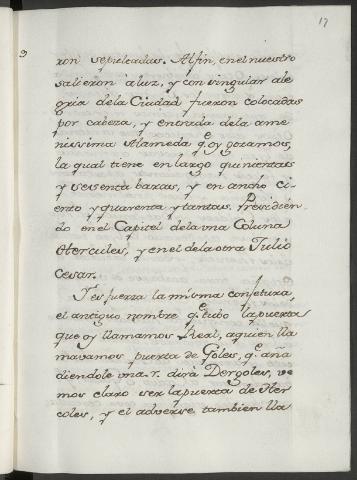 17
ron sepuleadas. Alfin, en el nuestro
salieron à luz, y con singular ale
gria dela Ciudad fueron colocadas
por cabeza, y entrada dela ame
nissima Alameda q.e oy gozamos,
la qual tiene en largo quinientas
y sesenta baxas, y en ancho ci-
ento y quarenta y tantas. Presidien-
do en el Capitel dela una Coluna
Hercules, y en el dela otra Tulio
Cesar.
Y es fuerza la misma conjetura,
el antiguo nombre q.e tubo la puerta
que oy llamamos Real, aquien lla
mavamos puerta de Goles, q.e aña
diendole una r. dirà Dergoles, ve
mos claro ser la puerta de Her
coles, y el adverse tambien lla